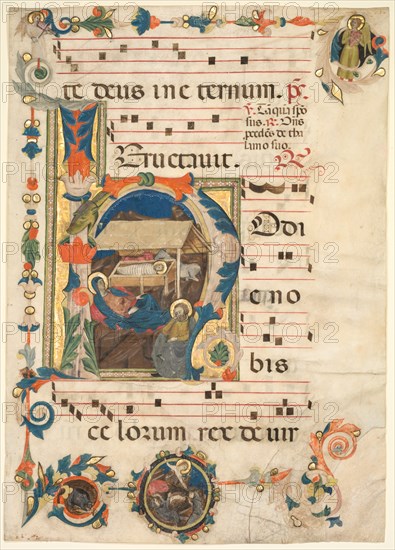 te deus in e ternum. ps̄.
℣. Tāquā spō
sus. ℟. Dn̄s
p̄cedēs de tha
lamo suo.
Eructavit.
Hodi
e no
bis
ce lorum rex de vir